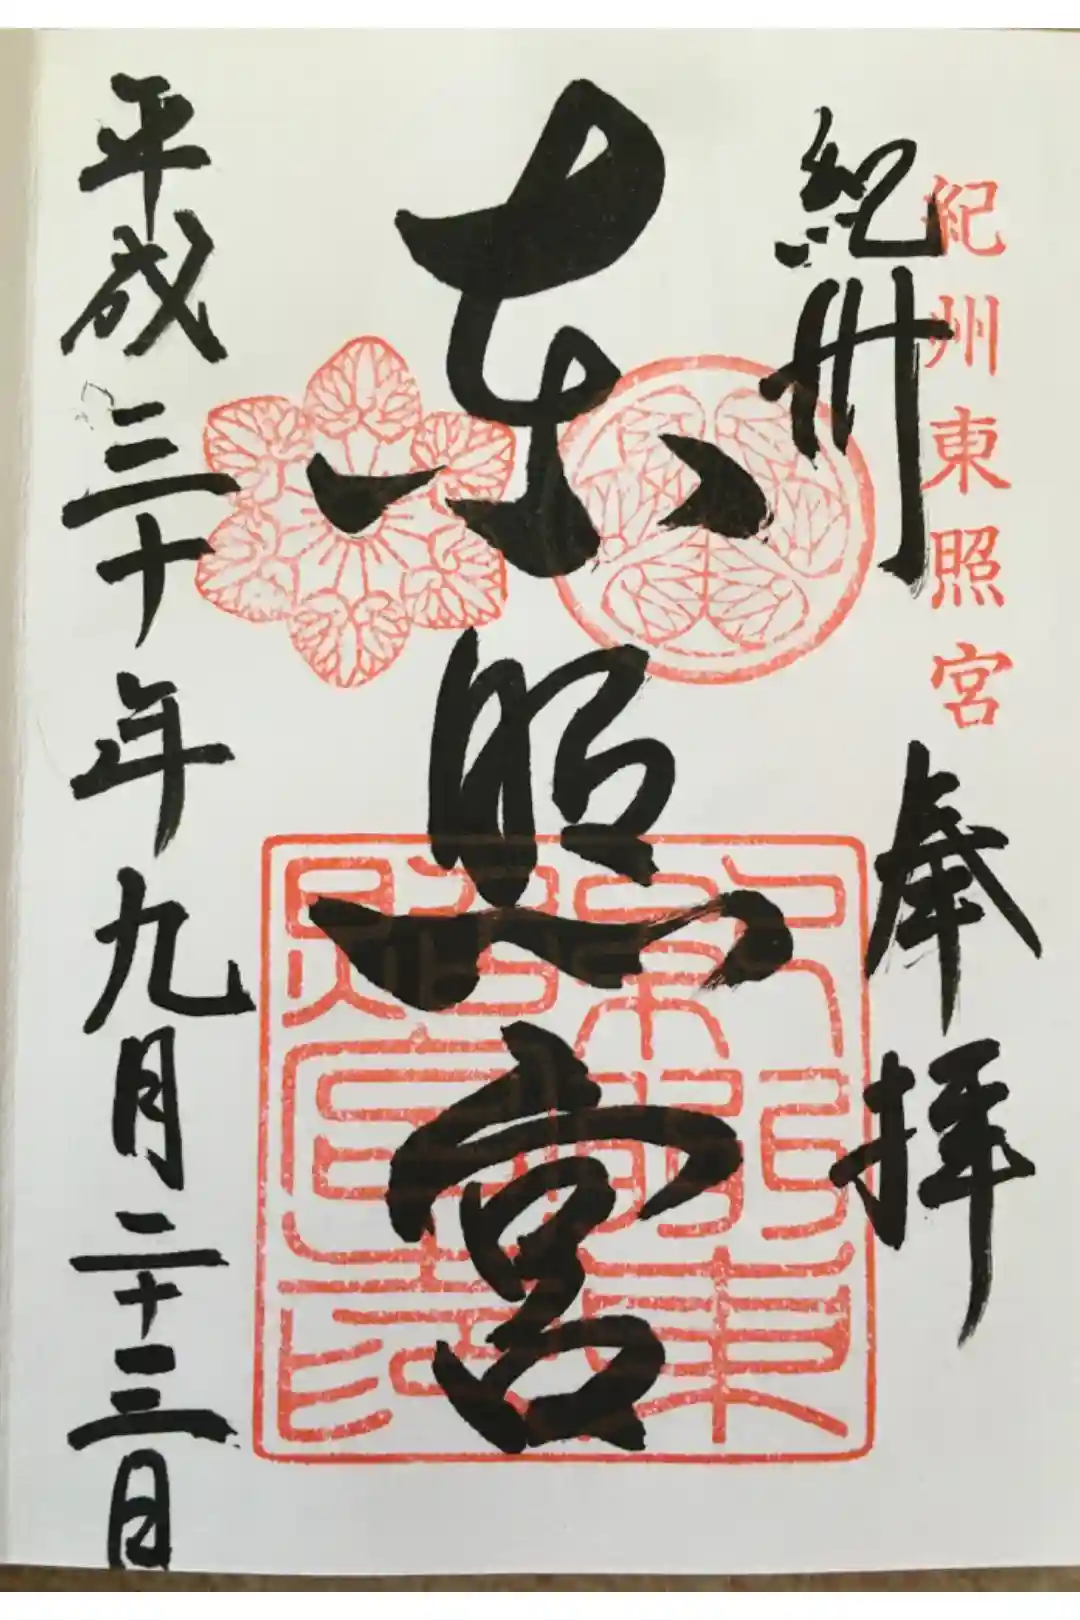 紀州東照宮
奉拝
紀州
東照宮
平成三十年九月二十三日